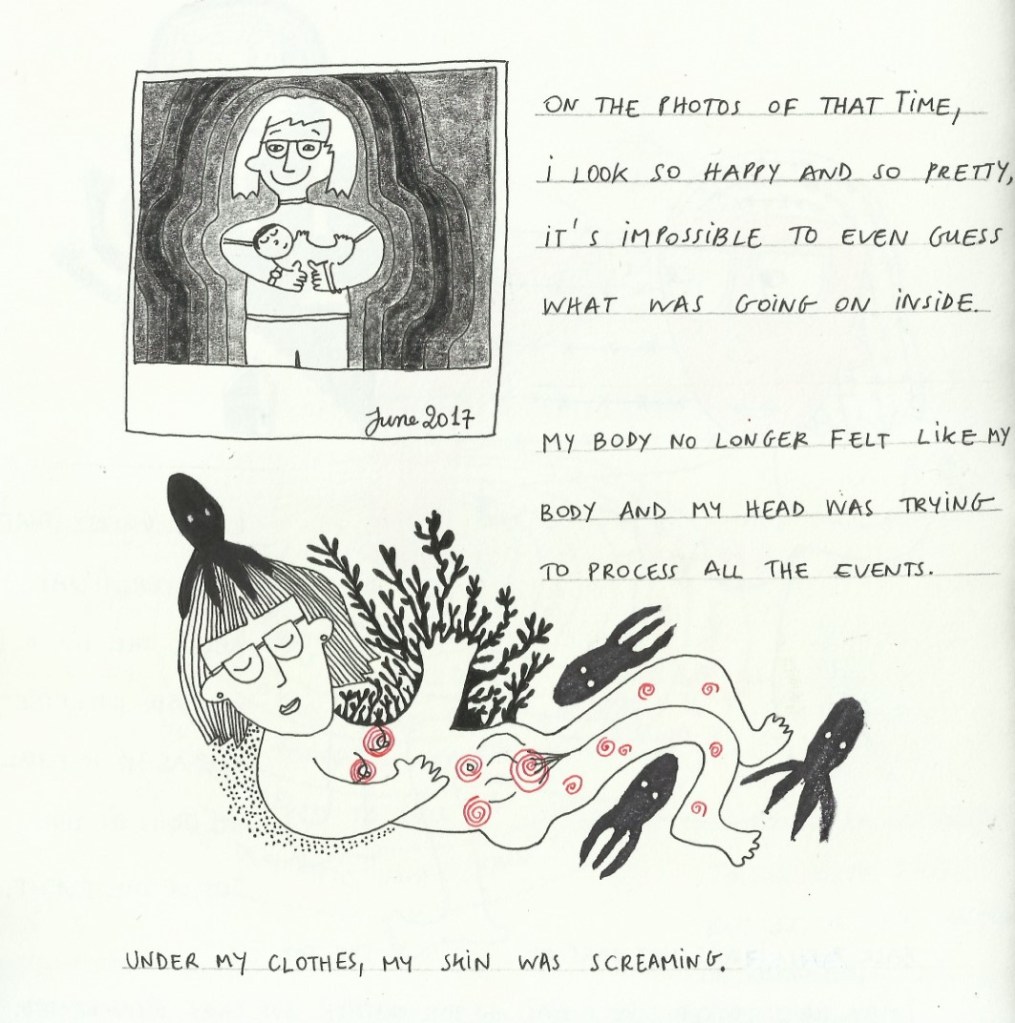 June 2017
ON THE PHOTOS OF THAT TIME,
i LOOK SO HAPPY AND SO PRETTY,
iT'S iMPOSSiBLE TO EVEN GUESS
WHAT WAS GOING ON iNSiDE.
MY BODY NO LONGER FELT LiKE MY
BODY AND MY HEAD WAS TRYiNG
TO PROCESS ALL THE EVENTS.
UNDER MY CLOTHES, MY SKiN WAS SCREAMiNG.